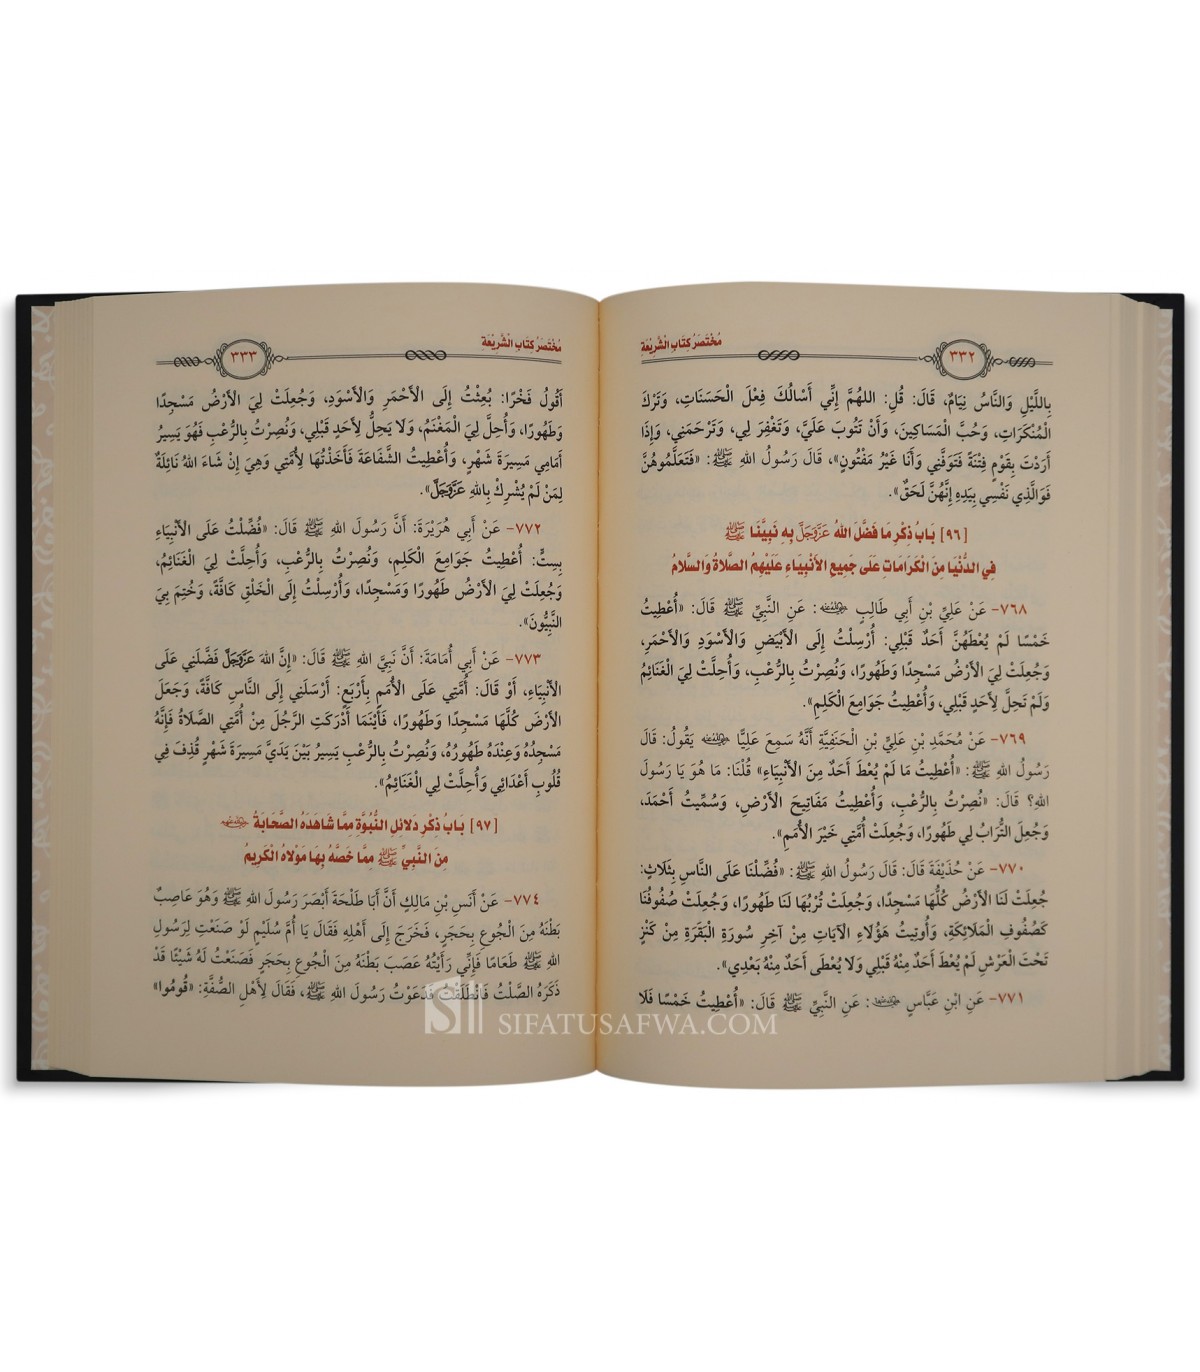 مُخْتَصَرُ كِتَابِ الشَّرِيعَةِ
٣٣٢
بِاللَّيْلِ وَالنَّاسُ نِيَامٌ، قَالَ: قُلِ: اللهُمَّ إِنِّي أَسْأَلُكَ فِعْلَ الْحَسَنَاتِ، وَتَرْكَ
الْمُنْكَرَاتِ، وَحُبَّ الْمَسَاكِينَ، وَأَنْ تَتُوبَ عَلَيَّ، وَتَغْفِرَ لِي، وَتَرْحَمَنِي، وَإِذَا
أَرَدْتَ بِقَوْمٍ فِتْنَةً فَتَوَفَّنِي وَأَنَا غَيْرُ مَفْتُونٍ»، قَالَ رَسُولُ اللهِ ﷺ: «فَتَعَلَّمُوهُنَّ
فَوَالَّذِي نَفْسِي بِيَدِهِ إِنَّهُنَّ لَحَقٌّ».
[٩٦] بَابُ ذِكْرِ مَا فَضَّلَ اللهُ عَزَّوَجَلَّ بِهِ نَبِيَّنَا ﷺ
فِي الدُّنْيَا مِنَ الْكَرَامَاتِ عَلَى جَمِيعِ الْأَنْبِيَاءِ عَلَيْهِمُ الصَّلَاةُ وَالسَّلَامُ
٧٦٨- عَنْ عَلِيِّ بْنِ أَبِي طَالِبٍ رضي الله عنه: عَنِ النَّبِيِّ ﷺ قَالَ: «أُعْطِيتُ
خَمْسًا لَمْ يُعْطَهُنَّ أَحَدٌ قَبْلِي: أُرْسِلْتُ إِلَى الْأَبْيَضِ وَالْأَسْوَدِ وَالْأَحْمَرِ،
وَجُعِلَتْ لِيَ الْأَرْضُ مَسْجِدًا وَطَهُورًا، وَنُصِرْتُ بِالرُّعْبِ، وَأُحِلَّتْ لِيَ الْغَنَائِمُ
وَلَمْ تَحِلَّ لِأَحَدٍ قَبْلِي، وَأُعْطِيتُ جَوَامِعَ الْكَلِمِ».
٧٦٩- عَنْ مُحَمَّدِ بْنِ عَلِيِّ بْنِ الْحَنَفِيَّةِ أَنَّهُ سَمِعَ عَلِيًّا رضي الله عنه يَقُولُ: قَالَ
رَسُولُ اللهِ ﷺ: «أُعْطِيتُ مَا لَمْ يُعْطَ أَحَدٌ مِنَ الْأَنْبِيَاءِ» قُلْنَا: مَا هُوَ يَا رَسُولَ
اللهِ؟ قَالَ: «نُصِرْتُ بِالرُّعْبِ، وَأُعْطِيتُ مَفَاتِيحَ الْأَرْضِ، وَسُمِّيتُ أَحْمَدَ،
وَجُعِلَ التُّرَابُ لِي طَهُورًا، وَجُعِلَتْ أُمَّتِي خَيْرَ الْأُمَمِ».
٧٧٠- عَنْ حُذَيْفَةَ قَالَ: قَالَ رَسُولُ اللهِ ﷺ: «فُضِّلْنَا عَلَى النَّاسِ بِثَلَاثٍ:
جُعِلَتْ لَنَا الْأَرْضُ كُلُّهَا مَسْجِدًا، وَجُعِلَتْ تُرْبُهَا لَنَا طَهُورًا، وَجُعِلَتْ صُفُوفُنَا
كَصُفُوفِ الْمَلَائِكَةِ، وَأُوتِيتُ هَؤُلَاءِ الْآيَاتِ مِنْ آخِرِ سُورَةِ الْبَقَرَةِ مِنْ كَنْزٍ
تَحْتَ الْعَرْشِ لَمْ يُعْطَ أَحَدٌ مِنْهُ قَبْلِي وَلَا يُعْطَى أَحَدٌ مِنْهُ بَعْدِي».
٧٧١- عَنِ ابْنِ عَبَّاسٍ رضي الله عنهما: عَنِ النَّبِيِّ ﷺ قَالَ: «أُعْطِيتُ خَمْسًا فَلَا
مُخْتَصَرُ كِتَابِ الشَّرِيعَةِ
٣٣٣
أَقُولُ فَخْرًا: بُعِثْتُ إِلَى الْأَحْمَرِ وَالْأَسْوَدِ، وَجُعِلَتْ لِيَ الْأَرْضُ مَسْجِدًا
وَطَهُورًا، وَأُحِلَّ لِيَ الْمَغْنَمُ، وَلَا يَحِلُّ لِأَحَدٍ قَبْلِي، وَنُصِرْتُ بِالرُّعْبِ فَهُوَ يَسِيرُ
أَمَامِي مَسِيرَةَ شَهْرٍ، وَأُعْطِيتُ الشَّفَاعَةَ فَأَخَذْتُهَا لِأُمَّتِي وَهِيَ إِنْ شَاءَ اللهُ نَائِلَةٌ
لِمَنْ لَمْ يُشْرِكْ بِاللهِ عَزَّوَجَلَّ».
٧٧٢- عَنْ أَبِي هُرَيْرَةَ: أَنَّ رَسُولَ اللهِ ﷺ قَالَ: «فُضِّلْتُ عَلَى الْأَنْبِيَاءِ
بِسِتٍّ: أُعْطِيتُ جَوَامِعَ الْكَلِمِ، وَنُصِرْتُ بِالرُّعْبِ، وَأُحِلَّتْ لِيَ الْغَنَائِمُ،
وَجُعِلَتْ لِيَ الْأَرْضُ طَهُورًا وَمَسْجِدًا، وَأُرْسِلْتُ إِلَى الْخَلْقِ كَافَّةً، وَخُتِمَ بِيَ
النَّبِيُّونَ».
٧٧٣- عَنْ أَبِي أُمَامَةَ: أَنَّ نَبِيَّ اللهِ ﷺ قَالَ: «إِنَّ اللهَ عَزَّوَجَلَّ فَضَّلَنِي عَلَى
الْأَنْبِيَاءِ، أَوْ قَالَ: أُمَّتِي عَلَى الْأُمَمِ بِأَرْبَعٍ: أَرْسَلَنِي إِلَى النَّاسِ كَافَّةً، وَجَعَلَ
الْأَرْضَ كُلَّهَا مَسْجِدًا وَطَهُورًا، فَأَيْنَمَا أَدْرَكَتِ الرَّجُلَ مِنْ أُمَّتِي الصَّلَاةُ فَإِنَّهُ
مَسْجِدُهُ وَعِنْدَهُ طَهُورُهُ، وَنُصِرْتُ بِالرُّعْبِ يَسِيرُ بَيْنَ يَدَيَّ مَسِيرَةَ شَهْرٍ قُذِفَ فِي
قُلُوبِ أَعْدَائِي وَأُحِلَّتْ لِي الْغَنَائِمُ».
[٩٧] بَابُ ذِكْرِ دَلَائِلِ النُّبُوَّةِ مِمَّا شَاهَدَهُ الصَّحَابَةُ رضي الله عنهم
مِنَ النَّبِيِّ ﷺ مِمَّا خَصَّهُ بِهَا مَوْلَاهُ الْكَرِيمُ
٧٧٤- عَنْ أَنَسِ بْنِ مَالِكٍ أَنَّ أَبَا طَلْحَةَ أَبْصَرَ رَسُولَ اللهِ ﷺ وَهُوَ عَاصِبٌ
بَطْنَهُ مِنَ الْجُوعِ بِحَجَرٍ، فَخَرَجَ إِلَى أَهْلِهِ فَقَالَ يَا أُمَّ سُلَيْمٍ لَوْ صَنَعْتِ لِرَسُولِ
اللهِ ﷺ طَعَامًا فَإِنِّي رَأَيْتُهُ عَصَبَ بَطْنَهُ مِنَ الْجُوعِ بِحَجَرٍ فَصَنَعْتُ لَهُ شَيْئًا قَدْ
ذَكَرَهُ الصَّلْتُ فَانْطَلَقْتُ فَدَعَوْتُ رَسُولَ اللهِ ﷺ، فَقَالَ لِأَهْلِ الصُّفَّةِ: «قُومُوا»
SIFATUSAFWA.COM